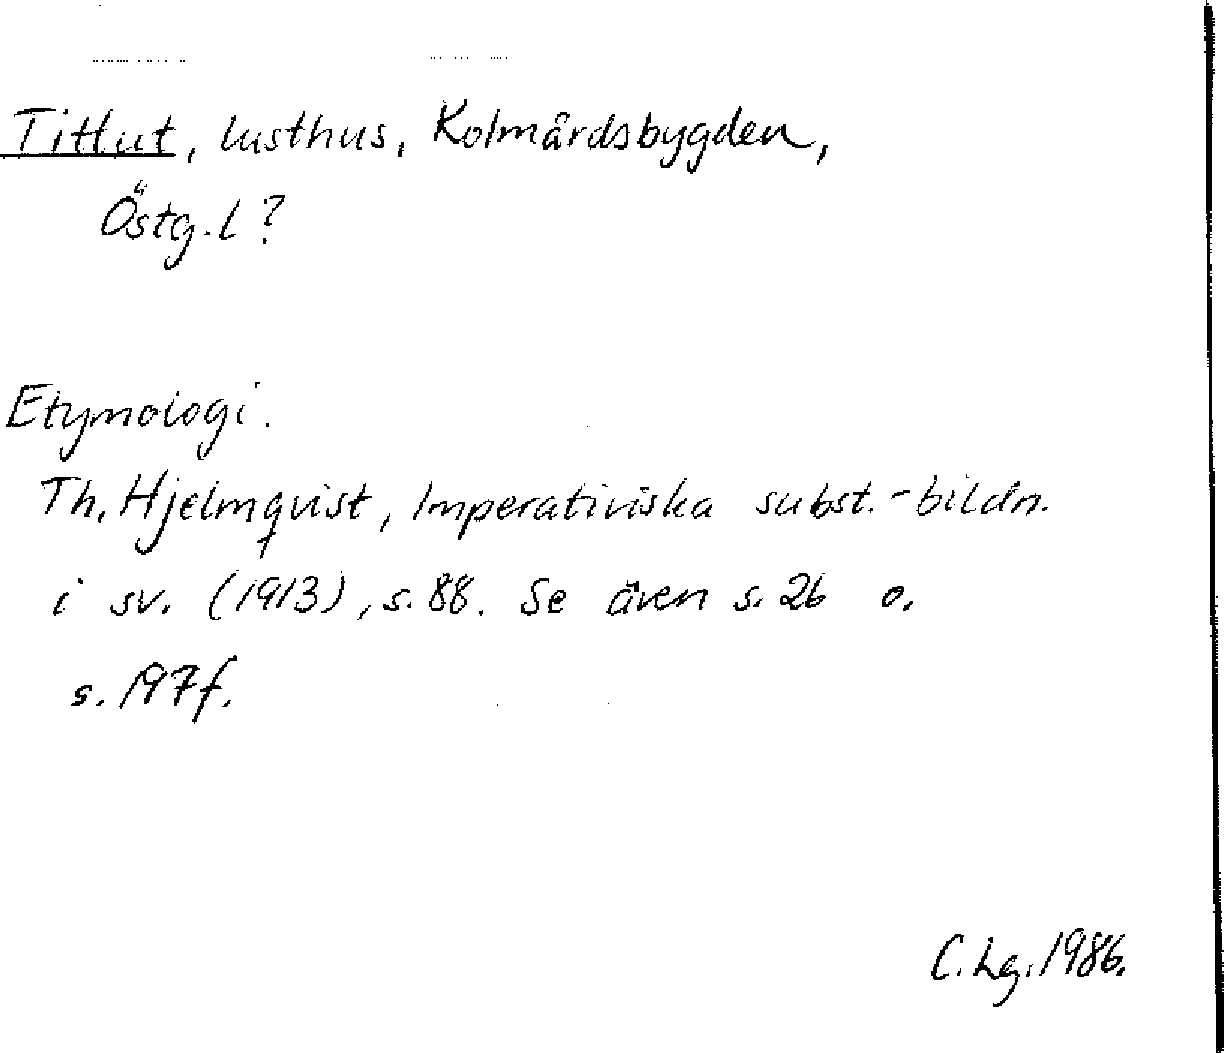 Tittut, lusthus, Kolmårdsbygden,
Östg.l?
Etymologi.
Th. Hjelmqvist, Imperativiska subst.-bildn.
i sv. (1913), s. 88. Se även s. 26 o.
s. 197f.
C. Lg. 1986.